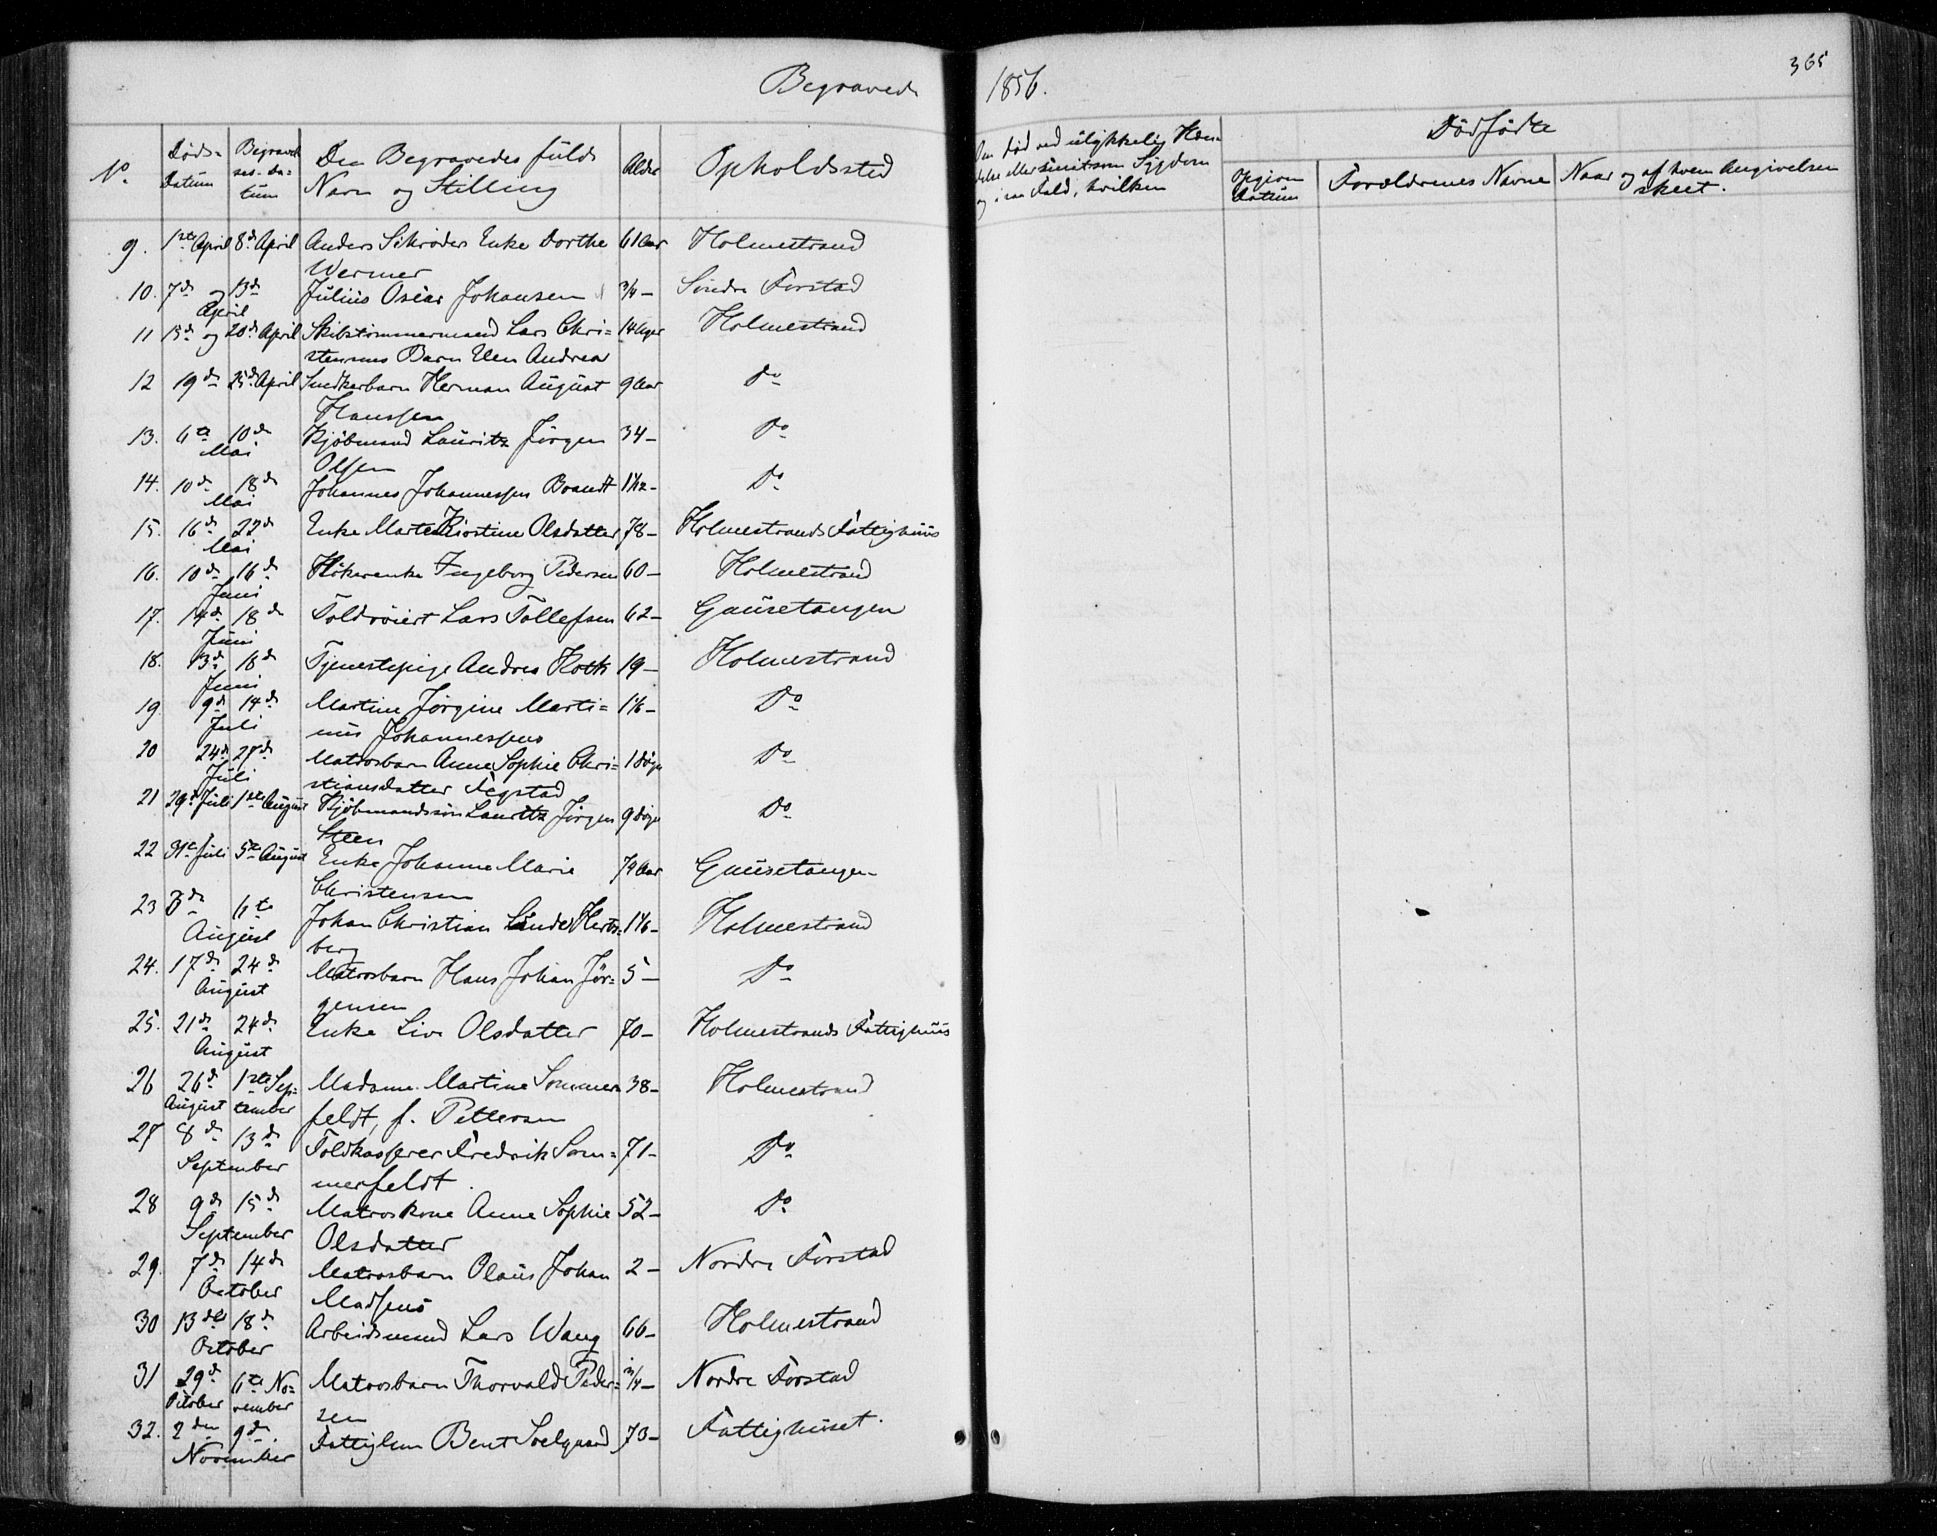 Begravede 1856.
365
No
Døds-Datum
Begravelses-Datum
Den Begravedes fulde Navn og Stilling
Alder
Opholdssted
Om død ved ulykkelig Hændelse eller smitsom Sygdom og i saa Fald, hvilken
Dødfødte
Datum
Forældrenes Navne
Naar og af hvem Angivelsen skeet.
9. 1ste April 8de April Anders Schrøders Enke Dorthe 61 Aar Holmestrand
Wermer
10. 7de og 13de Julius Oscar Johansen 3/4 - Søndre Forstad
April
11 15de og 20de April Skibstømmermand Lars Chri= 14 Uger Holmestrand
stensens Barn Elen Andrea
12 19de 25de April Snedkerbarn Herman August 9 Aar Do
Hanssen
13. 6te 10de Kjøbmand Lauritz Jørgen 34 - Do
Mai
Olsen
14. 10de 18de Johannes Johannessen Brandt 1 1/2 - Do
Mai
15. 16de 22de Enke Marte Kirstine Olsdatter 78 - Holmestrands Fattighuus
Mai
16. 10de 16de Høkerenke Ingeborg Pedersen 60 - Holmestrand
Juni
17. 14de 18de Toldroiert Lars Tollefsen 62 - Gausetangen
Juni
18. 13de 18de Tjenestepige Andrea Holk 19 - Holmestrand
Juni
19. 9de 14de Martine Jørgine Marti= 1 1/6 - Do
Juli
nus Johannessens
20 24de 27de Matrosbarn Anne Sophie Chri= 1 Døgn Do
Juli
stiansdatter Fegstad
21 29de Juli 1ste August Kjøbmandssøn Lauritz Jørgen 9 Døgn Do
Steen
22 31te Juli 5te August Enke Johanne Marie 74 Aar Gausetangen
Christensen
23 3de 6te Johan Christian Linde Herts= 1 1/6 - Holmestrand
August
berg
24. 17de 24de Matrosbarn Hans Johan Jør= 5 - Do
August
gensen
25. 21de 24de Enke Live Olsdatter 70 - Holmestrands Fattighuus
August
26 26de 1ste Sep= Madame Martine Sommer= 38 - Holmestrand
August tember
feldt, f. Pettersen
27 8de 13de Toldkasserer Fredrik Som= 71 - Do
September
merfeldt.
28 9de 15de Matroskone Anne Sophie 52 - Do
September
Olsdatter
29. 7de 14de Matrosbarn Olaus Johan 2 - Nordre Forstad
October
Madsens
30 13de 18de Arbeidsmand Lars Wang 66 - Holmestrand
October
31 29de 6te No= Matrosbarn Thorvald Peder= 3/4 - Nordre Forstad
October vember
sen
32. 2den 9de Fattiglem Bent Soelgaard 73 - Fattighuset.
November